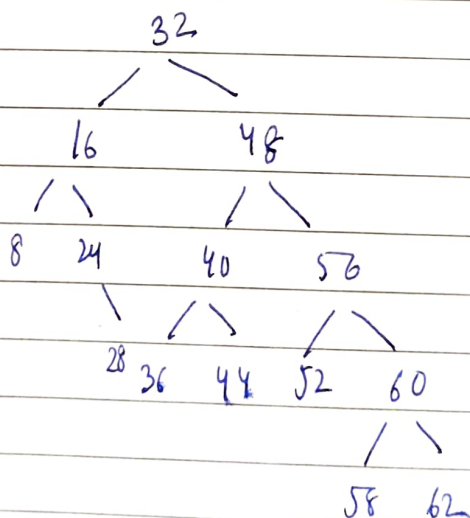 32
16 48
8 24 40 56
28 36 44 52 60
58 62